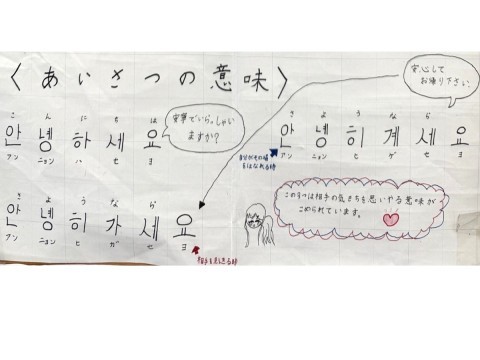 〈あいさつの意味〉
こ ん に ち は
안 녕 하 세 요
アン ニョン ハ セ ヨ
安寧でいらっしゃい
ますか?
安心して
お帰り下さい
さ よ う な ら
안 녕 히 계 세 요
アン ニョン ヒ ゲ セ ヨ
自分がその場
をはなれる時
さ よ う な ら
안 녕 히 가 세 요
アン ニョン ヒ ガ セ ヨ
相手を見送る時
この3つは相手の気もちを思いやる意味が
こめられています。